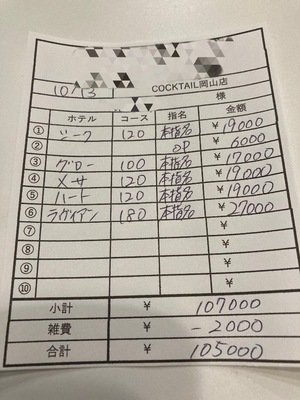 COCKTAIL岡山店
10/13 様
ホテル コース 指名 金額
① シーク 120 本指名 ¥19000
② OP ¥6000
③ グロー 100 本指名 ¥17000
④ メサ 120 本指名 ¥19000
⑤ ハート 120 本指名 ¥19000
⑥ ラヴィアン 180 本指名 ¥27000
⑦ ¥
⑧ ¥
⑨ ¥
⑩ ¥
小計 ¥ 107000
雑費 ¥ -2000
合計 ¥ 105000